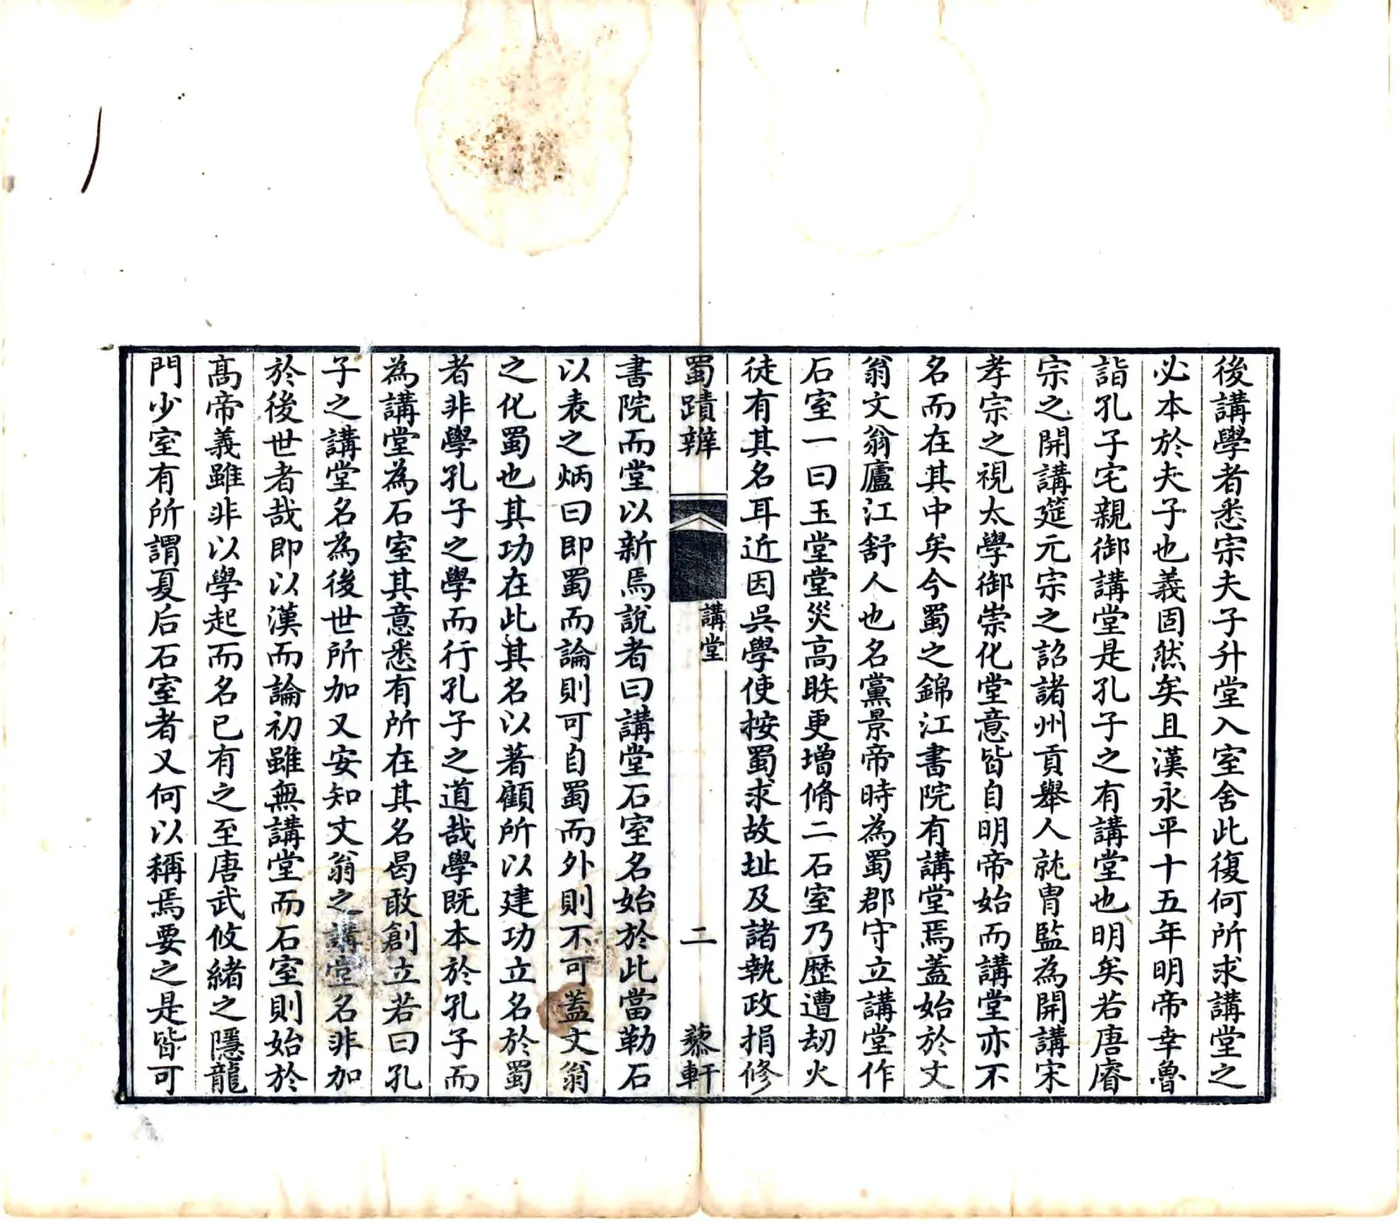 後講學者悉宗夫子升堂入室舍此復何所求講堂之
必本於夫子也義固然矣且漢永平十五年明帝幸魯
詣孔子宅親御講堂是孔子之有講堂也明矣若唐睿
宗之開講筵元宗之詔諸州貢舉人就胄監為開講宋
孝宗之視太學御崇化堂意皆自明帝始而講堂亦不
名而在其中矣今蜀之錦江書院有講堂焉蓋始於文
翁文翁廬江舒人也名黨景帝時為蜀郡守立講堂作
石室一曰玉堂堂災高䀢更增脩二石室乃歷遭刼火
徒有其名耳近因吳學使按蜀求故址及諸執政捐修
蜀蹟辨
講堂
二
蓼軒
書院而堂以新焉說者曰講堂石室名始於此當勒石
以表之炳曰即蜀而論則可自蜀而外則不可蓋文翁
之化蜀也其功在此其名以著顧所以建功立名於蜀
者非學孔子之學而行孔子之道哉學既本於孔子而
為講堂為石室其意悉有所在其名曷敢創立若曰孔
子之講堂名為後世所加又安知文翁之講堂名非加
於後世者哉即以漢而論初雖無講堂而石室則始於
高帝義雖非以學起而名已有之至唐武攸緒之隱龍
門少室有所謂夏后石室者又何以稱焉要之是皆可